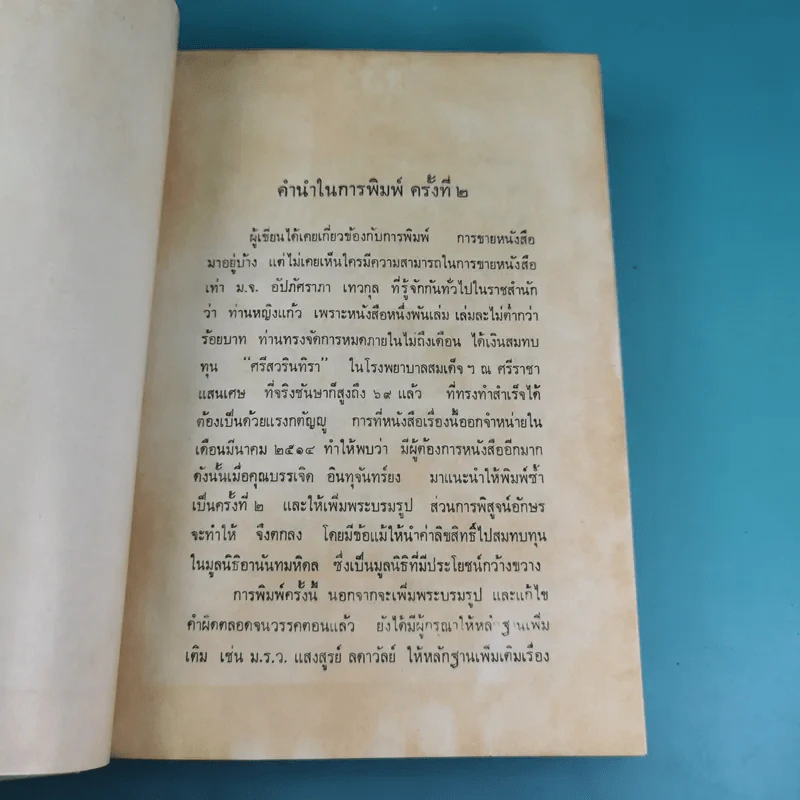 คำนำในการพิมพ์ ครั้งที่ ๒
ผู้เขียนได้เคยเกี่ยวข้องกับการพิมพ์ การขายหนังสือ
มาอยู่บ้าง แต่ไม่เคยเห็นใครมีความสามารถในการขายหนังสือ
เท่า ม.จ. อัปภัศราภา เทวกุล ที่รู้จักกันทั่วไปในราชสำนัก
ว่า ท่านหญิงแก้ว เพราะหนังสือหนึ่งพันเล่ม เล่มละไม่ต่ำกว่า
ร้อยบาท ท่านทรงจัดการหมดภายในไม่ถึงเดือน ได้เงินสมทบ
ทุน “ศรีสวรินทิรา” ในโรงพยาบาลสมเด็จฯ ณ ศรีราชา
แสนเศษ ที่จริงชันษาก็สูงถึง ๖๙ แล้ว ที่ทรงทำสำเร็จได้
ต้องเป็นด้วยแรงกตัญญู การที่หนังสือเรื่องนี้ออกจำหน่ายใน
เดือนมีนาคม ๒๕๑๔ ทำให้พบว่า มีผู้ต้องการหนังสืออีกมาก
ดังนั้นเมื่อคุณบรรเจิด อินทุจันทร์ยง มาแนะนำให้พิมพ์ซ้ำ
เป็นครั้งที่ ๒ และให้เพิ่มพระบรมรูป ส่วนการพิสูจน์อักษร
จะทำให้ จึงตกลง โดยมีข้อแม้ให้นำค่าลิขสิทธิ์ไปสมทบทุน
ในมูลนิธิอานันทมหิดล ซึ่งเป็นมูลนิธิที่มีประโยชน์กว้างขวาง
การพิมพ์ครั้งนี้ นอกจากจะเพิ่มพระบรมรูป และแก้ไข
คำผิดตลอดจนวรรคตอนแล้ว ยังได้มีผู้กรุณาให้หลักฐานเพิ่ม
เติม เช่น ม.ร.ว. แสงสูรย์ ลดาวัลย์ ให้หลักฐานเพิ่มเติมเรื่อง